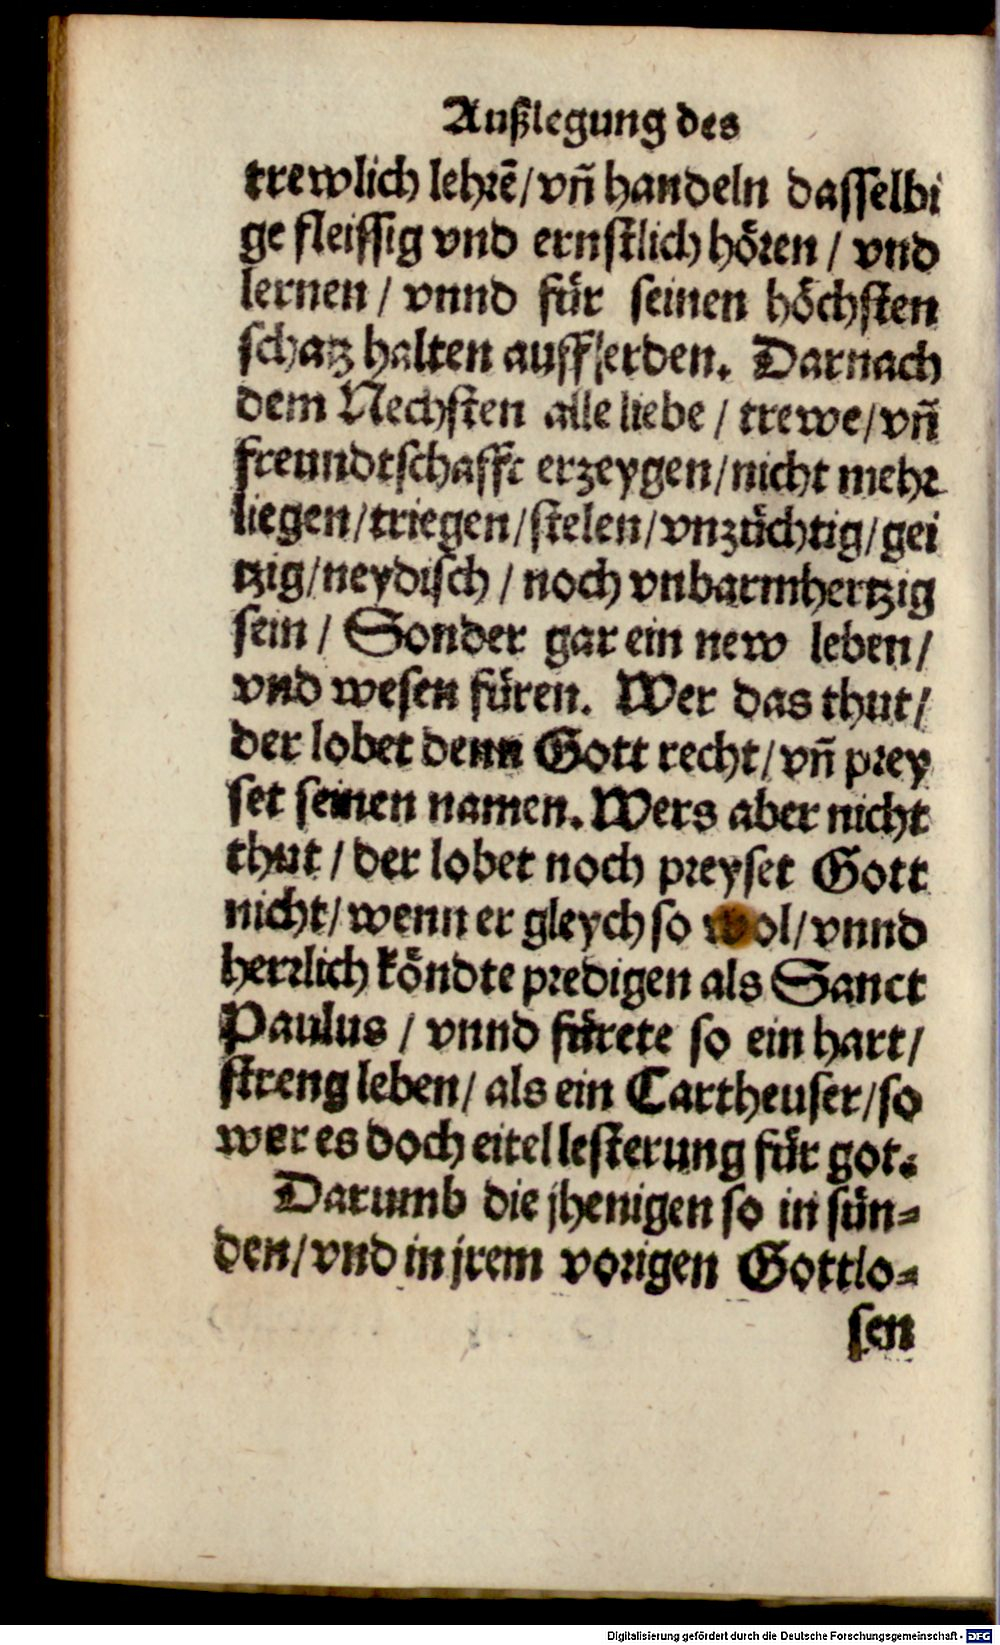 Außlegung des
trewlich lehrē/ vñ handeln dasselbi
ge fleissig vnd ernstlich hören / vnd
lernen / vnnd für seinen höchsten
schatz halten auff erden. Darnach
dem Nechsten alle liebe / trewe / vñ
freundtschafft erzeygen / nicht mehr
liegen / triegen / stelen / vnzüchtig / gei
tzig / neydisch / noch vnbarmhertzig
sein / Sonder gar ein new leben /
vnd wesen füren. Wer das thut /
der lobet denn Gott recht / vñ prey
set seinen namen. Wers aber nicht
thut / der lobet noch preyset Gott
nicht / wenn er gleych so wol / vnnd
herrlich köndte predigen als Sanct
Paulus / vnnd fürete so ein hart /
streng leben / als ein Cartheuser / so
wer es doch eitel lesterung für got.
Darumb die jhenigen so in sün=
den / vnd in jrem vorigen Gottlo=
sen
Digitalisierung gefördert durch die Deutsche Forschungsgemeinschaft - DFG